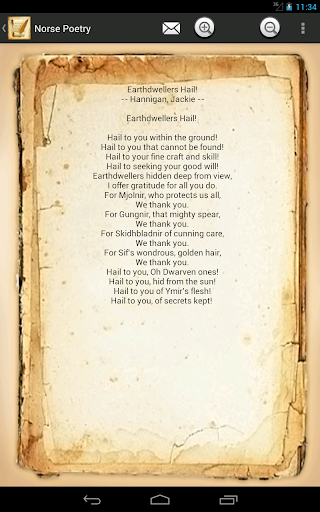 3G
11:34
Norse Poetry
Earthdwellers Hail!
-- Hannigan, Jackie --
Earthdwellers Hail!
Hail to you within the ground!
Hail to you that cannot be found!
Hail to your fine craft and skill!
Hail to seeking your good will!
Earthdwellers hidden deep from view,
I offer gratitude for all you do.
For Mjolnir, who protects us all,
We thank you.
For Gungnir, that mighty spear,
We thank you.
For Skidhbladnir of cunning care,
We thank you.
For Sif's wondrous, golden hair,
We thank you.
Hail to you, Oh Dwarven ones!
Hail to you, hid from the sun!
Hail to you of Ymir's flesh!
Hail to you, of secrets kept!